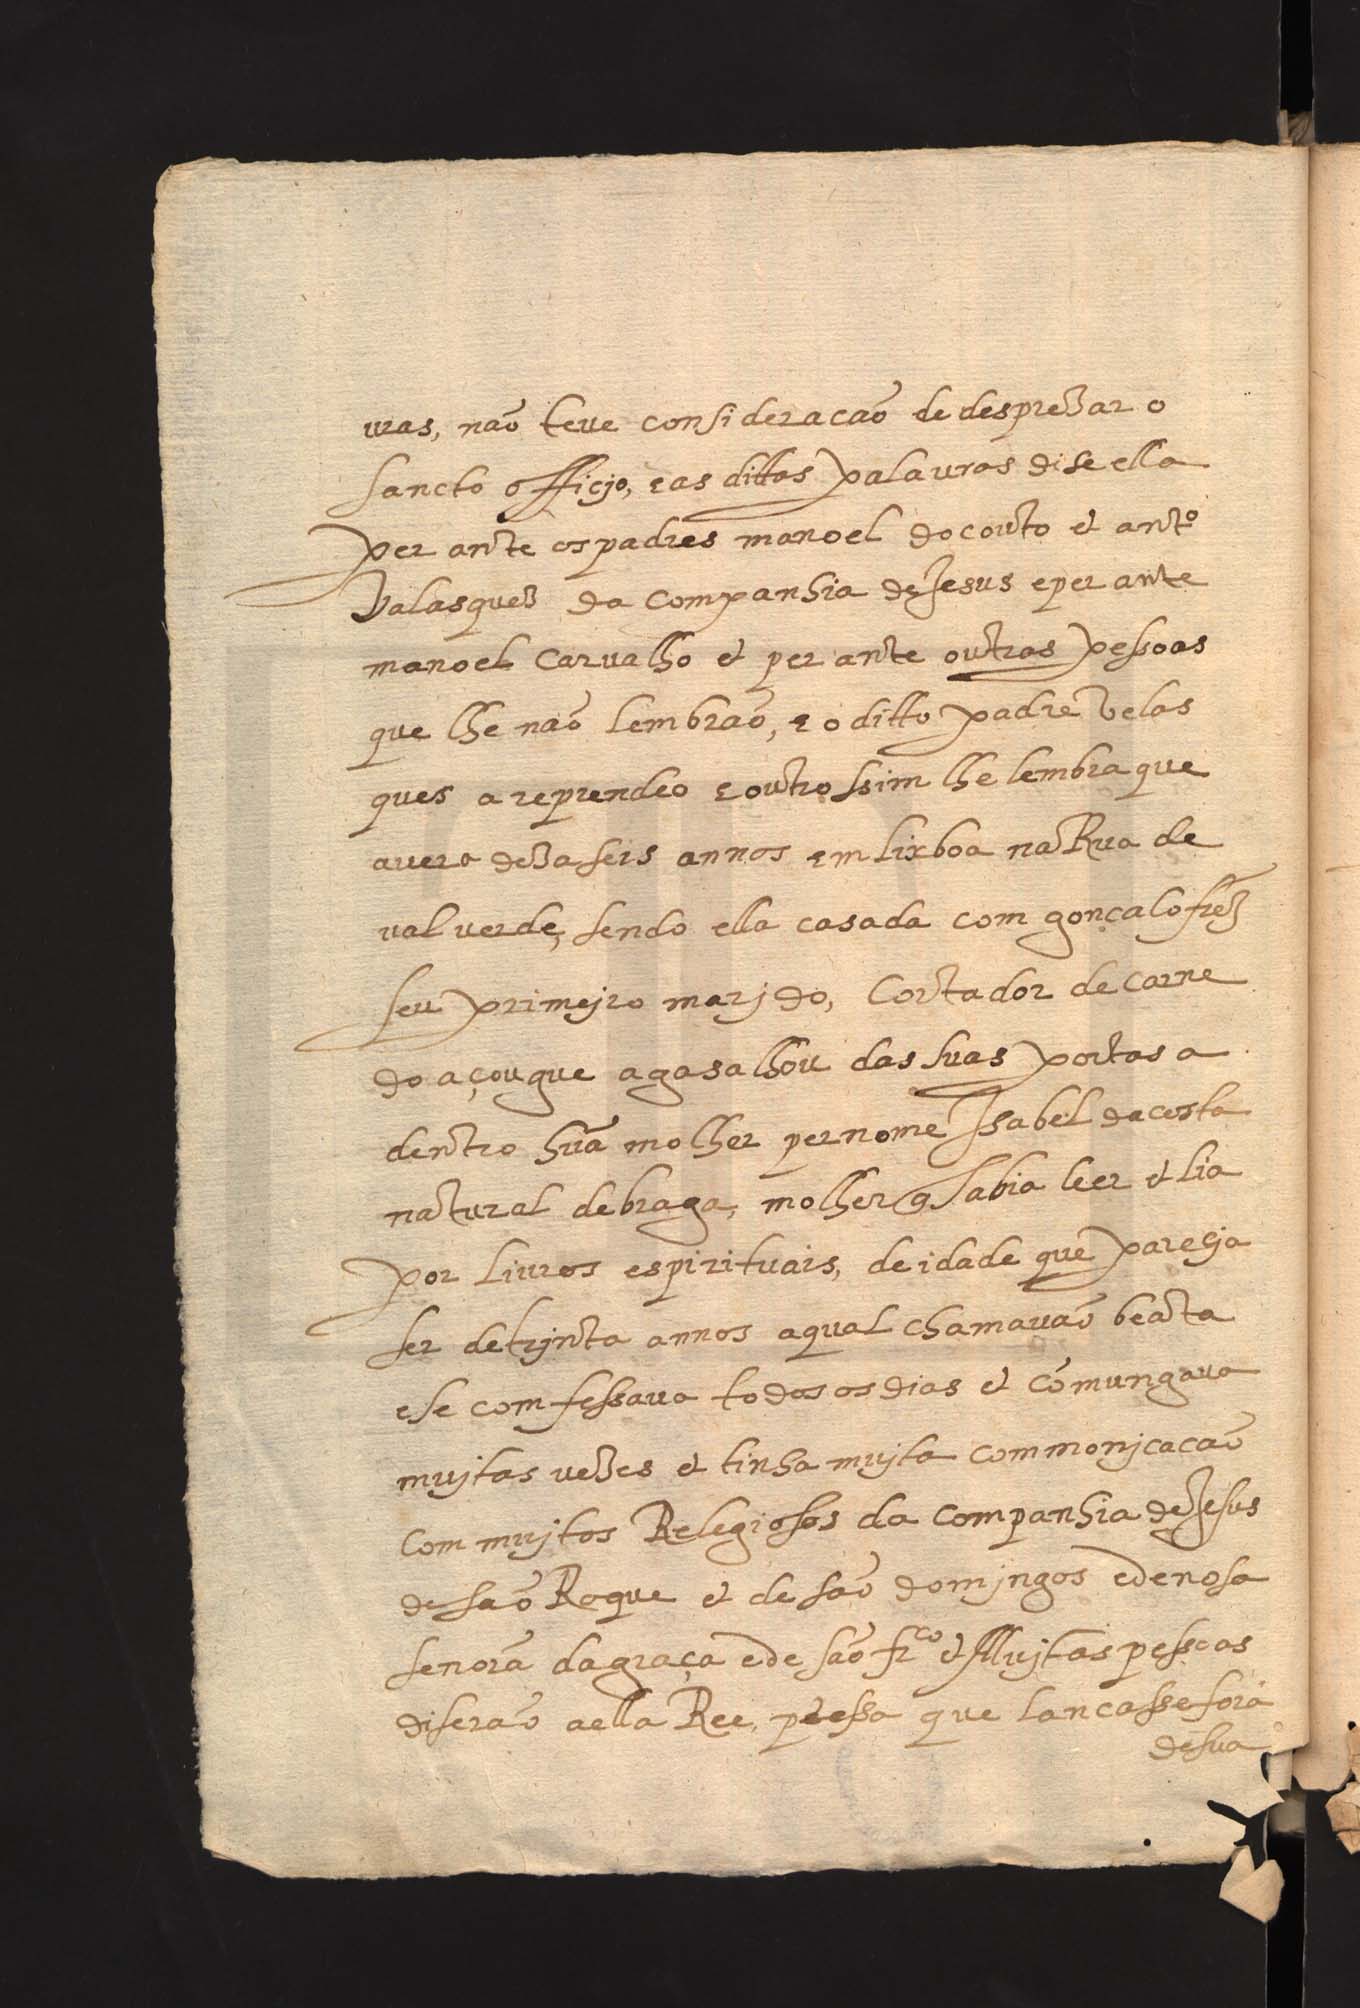 uras, não teue consideracão de desprezar o
sancto officjo, e as dittas palauras dise ella
per ante os padres manoel do couto et antº
Valasquez da companhia de Jesus e per ante
manoel Carualho et per ante outras pessoas
que lhe não lembrão, e o ditto padre Velas
ques a reprendeo e outrossim lhe lembra que
auera dezaseis annos em lixboa na Rua de
valuerde, sendo ella casada com gonçalo frz̃
seu primejro marjdo, Cortador de carne
do açougue agasalhou das suas portas a
dentro hũa molher per nome Isabel da costa
natural de braga, molher q̃ sabia leer et lia
por liuros espirituais, de idade que parecja
ser de trjnta annos a qual chamauão beata
e se comfessaua todos os dias et cōmungaua
mujtas vezes et tinha mujta commonjcacão
com mujtos Relegiosos da companhia de Jesus
de são Roque et de são domjngos e de nosa
senora da graça e de são frco et Mujtas pessoas
diserão a ella Ree, que lancasse fora
de sua